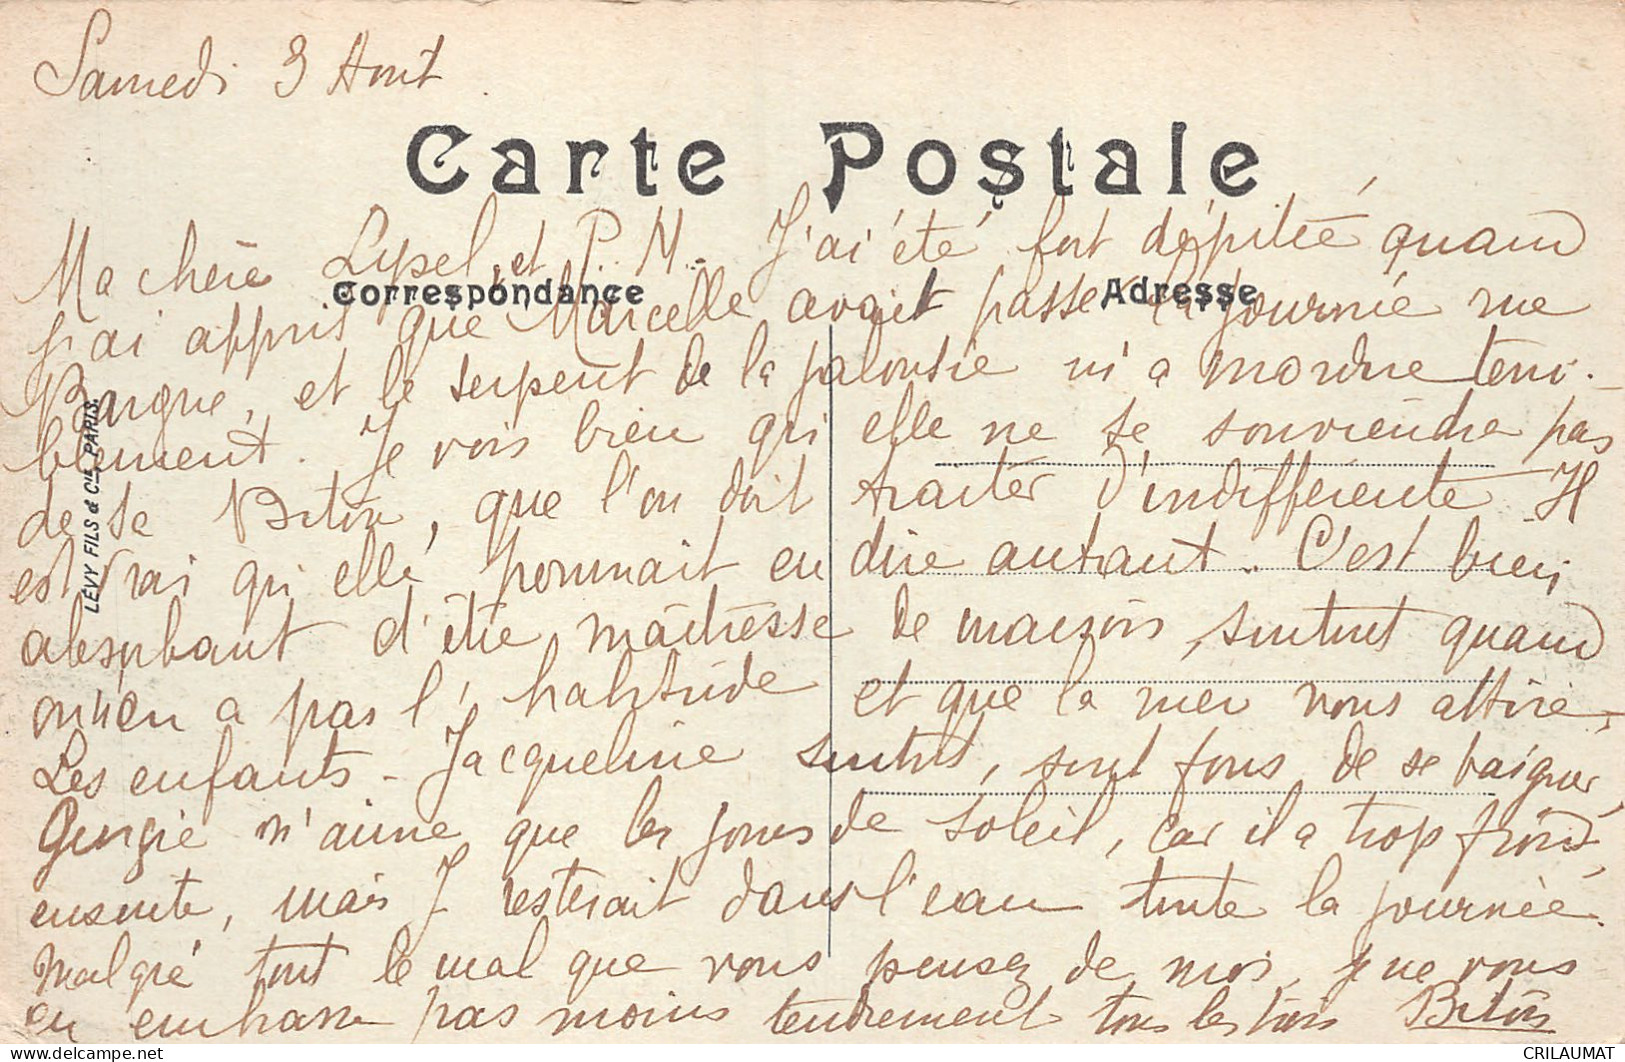 Samedi 3 Aout
Carte Postale
Ma chère Lysel et P. M. J'ai été fort dépitée quand
Correspondance
Adresse
j'ai appris que Marcelle avait passé la journée rue
Bargue, et le serpent de la jalousie m'a mordue terri-
blement. Je vois bien qu'elle ne se souviendra pas
de sa Bitou, que l'on doit traiter d'indifférente Il
est vrai qu'elle pourrait en dire autant. C'est bien
absorbant d'être maîtresse de maison, surtout quand
on n'en a pas l'habitude et que la mer vous attire.
Les enfants - Jacqueline surtout, sont fous de se baigner,
Georgie n'aime que les jours de soleil, car il a trop froid
ensuite, mais J resterait dans l'eau toute la journée.
Malgré tout le mal que vous pensez de moi, je ne vous
en embrasse pas moins tendrement tous les trois Bitou
LEVY FILS & Cie, PARIS.
CRILAUMAT